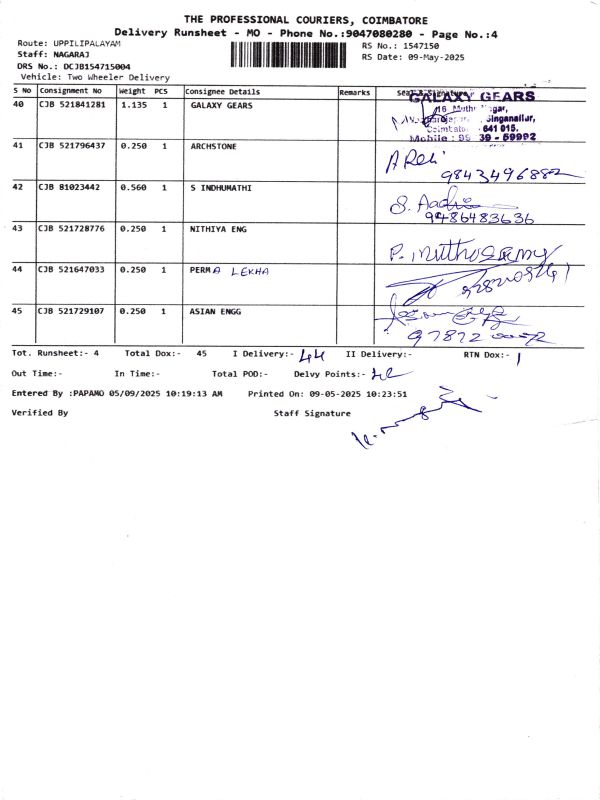 THE PROFESSIONAL COURIERS, COIMBATORE
Delivery Runsheet - MO - Phone No.:9047080280 - Page No.:4
Route: UPPILIPALAYAM
RS No.: 1547150
Staff: NAGARAJ
RS Date: 09-May-2025
DRS No.: DCJB154715004
Vehicle: Two Wheeler Delivery
S No Consignment No Weight PCS Consignee Details Remarks Seal & Signature
40 CJB 521841281 1.135 1 GALAXY GEARS
GALAXY GEARS
Singanallur,
641 015.
41 CJB 521796437 0.250 1 ARCHSTONE
9843496882
42 CJB 81023442 0.560 1 S INDHUMATHI
9486483636
43 CJB 521728776 0.250 1 NITHIYA ENG
44 CJB 521647033 0.250 1 PERMA LEKHA
45 CJB 521729107 0.250 1 ASIAN ENGG
Tot. Runsheet:- 4 Total Dox:- 45 I Delivery:- 44 II Delivery:- RTN Dox:- 1
Out Time:- In Time:- Total POD:- Delvy Points:- 42
Entered By :PAPAMO 05/09/2025 10:19:13 AM Printed On: 09-05-2025 10:23:51
Verified By Staff Signature